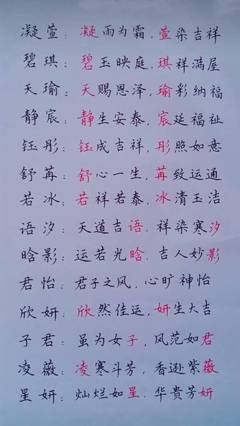 凝萱：凝雨为霜，萱染吉祥
碧琪：碧玉映庭，琪祥满屋
天瑜：天赐恩泽，瑜彩纳福
静宸：静生安泰，宸延福祉
钰彤：钰成吉祥，彤照如意
舒苒：舒心一生，苒致运通
若冰：若祥若泰，冰清玉洁
语汐：天道吉语，祥染寒汐
晗影：运若光晗，吉人妙影
君怡：君子之风，心旷神怡
欣妍：欣然佳运，妍生大吉
子君：虽为女子，风范如君
凌薇：凌寒斗芳，香逊紫薇
星妍：灿烂如星，华贵芳妍